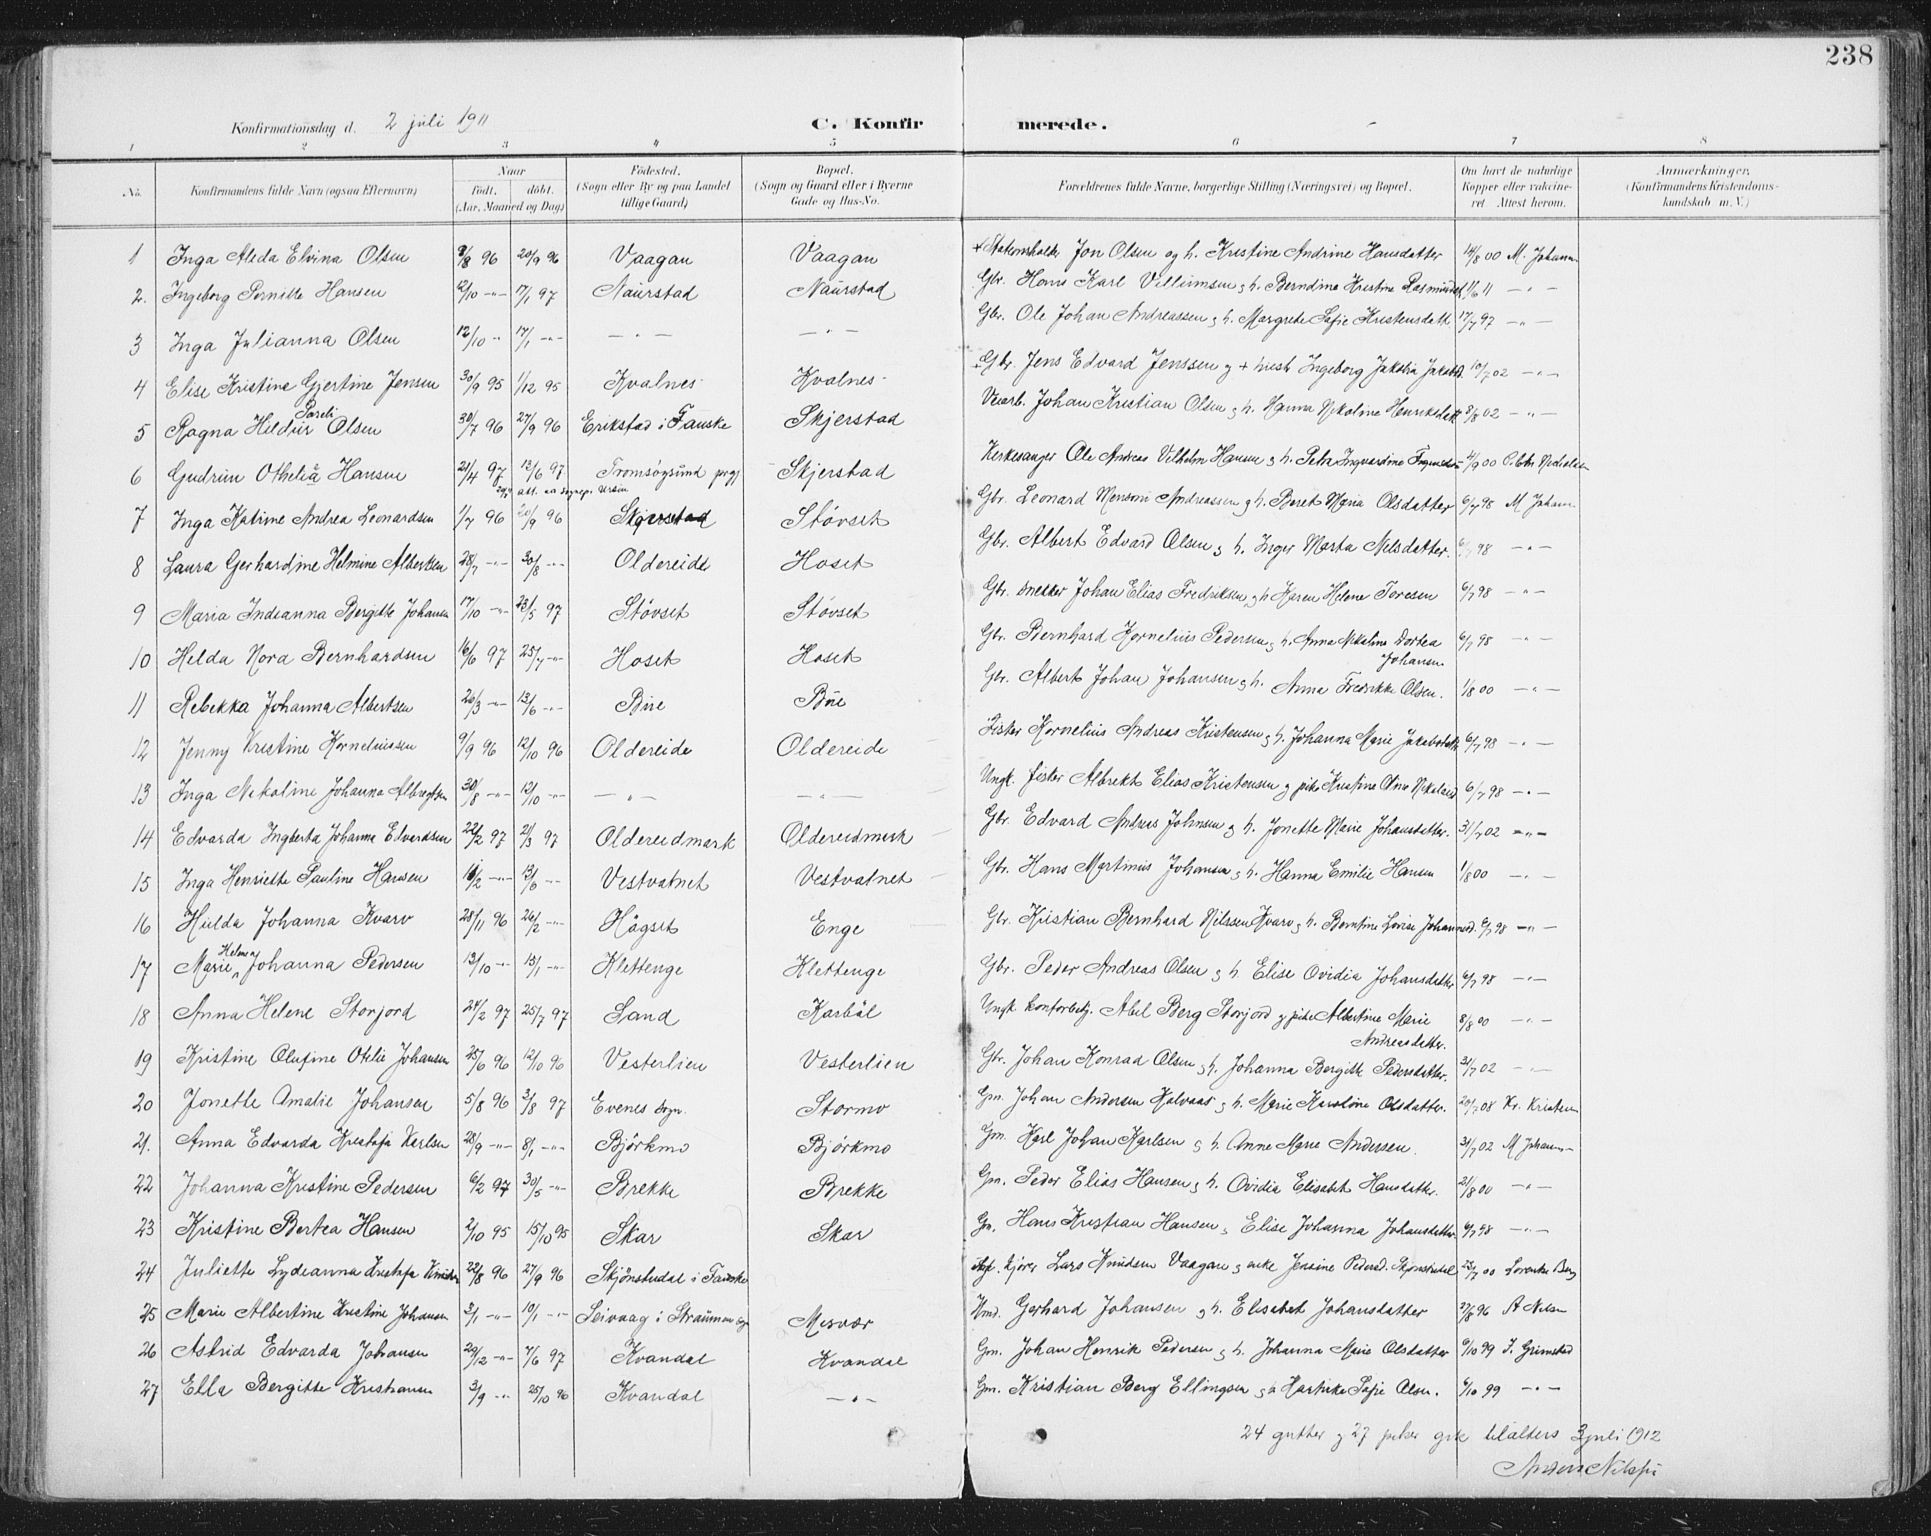 238
Konfirmationsdag d. 2 juli 1911
C. Konfirmerede.
1 2 3 4 5 6 7 8
No. Konfirmandens fulde Navn (ogsaa Efternavn) Naar født. døbt. (Aar, Maaned og Dag) Fødested. (Sogn eller By og paa Landet tillige Gaard) Bopæl. (Sogn og Gaard eller i Byerne Gade og Hus-No. Forældrenes fulde Navne, borgerlige Stilling (Næringsvei) og Bopæl. Om havt de naturlige Kopper eller vakcineret Attest herom. Anmærkninger. (Konfirmandens Kristendomskundskab m. V.)
1 Inga Alida Elvina Olsen 9/8 96 20/9 96 Vaagan Vaagan + Jon Olsen og h. Kristine Andrine Hansdatter 14/8 00 M. Johann
2. Ingeborg Pernitte Hansen 9/10 -"- 17/1 97 Naurstad Naurstad Gbr. Hans Karl Villumsen og h. Berndine Kristine 1/6 11 -"-
3 Inga Julianna Olsen 12/10 " 17/1 -"- -"- -"- Gbr. Ole Johan Andreassen og h. Margrete Sofie Kristensdatt. 17/7 97 -"-
4 Elise Kristine Gjertine Jensen 30/9 95 1/12 95 Kvalnes Kvalnes Gbr. Jens Edvard Jenssen og + hust. Ingeborg Jakobia 10/7 02 -"-
5 Ragna Hildur Pareli Olsen 30/7 96 27/9 96 Erikstad i Fauske Skjerstad Veiarb. Johan Kristian Olsen og h. Hanna Nikoline Henriksdatt 8/8 02 -"-
6 Gudrun Othelia Hansen 21/4 97 12/6 97 Tromsøsund prgj Skjerstad Kirkesanger Ole Andreas Vilhelm Hansen og h. Petra Ingvardine 4/9 00
7 Inga Katrine Andrea Leonardsen 1/7 96 20/9 96 Skjerstad Støvset Gbr. Leonard Monsoni Andreassen og h. Beret Maria Olsdatter 6/7 98 M Johann
8 Laura Gerhardine Helmine Albertsen 28/7 -"- 30/8 -"- Oldereide Hoset Gbr. Albert Edvard Olsen og h. Inger Marta Nilsdatter. 6/7 98 -"-
9 Maria Indianna Bergitte Johansen 17/10 -"- 23/5 97 Støvset Støvset Gbr. snekker Johan Elias Fredriksen og h Karen Helene Toresen 6/7 98 -"-
10 Helda Nora Bernhardsen 16/6 97 25/7 -"- Hoset Hoset Gbr. Bernhard Kornelius Pedersen og h. Anna Nikoline Dortea Johansen 6/7 98 -"-
11 Rebekka Johanna Albertsen 20/3 -"- 13/6 -"- Bue Bue Gbr. Albert Johan Johansen og h. Anna Fredrikke Olsen. 1/8 00 -"-
12 Jenny Kristine Korneliussen 9/9 96 12/10 96 Oldereide Oldereide Fisker Kornelius Andreas Kristensen og h. Johanna Marie Jakobsdatt. 6/7 98 -"-
13 Inga Nikoline Johanna Albregtsen 30/8 -"- 12/10 -"- -"- -"- Ungk. fisker Albrekt Elias Kristensen og pike Kristine Oline Nikolaisd 6/7 98 -"-
14 Edvarda Ingberta Johanna Edvardsen 22/2 97 21/3 97 Oldereidmark Oldereidmark Gbr. Edvard Andreas Johnsen og h. Jonette Marie Johansdatter. 31/7 02 -"-
15 Inga Henriette Pauline Hansen 11/2 -"- 13/6 -"- Vestvatnet Vestvatnet Gbr. Hans Martinius Johansen og h. Hanna Emilie Hansen 1/8 00 -"-
16 Hulda Johanna Kvarv 28/11 96 26/2 -"- Högset Enge Gbr. Kristian Bernhard Nilssen Kvarv og h. Berntine Lovise Johannesd. 6/7 98 -"-
17 Marie Helene Johanna Pedersen 13/10 -"- 15/1 -"- Klettenge Klettenge Gbr. Peder Andreas Olsen og h. Elise Ovidia Johansdatter 6/7 98 -"-
18 Anna Helene Storjord 24/2 97 25/7 97 Sand Karböl Ungk kontorbetj. Abel Berg Storjord og pike Albertine Marie Andreasdatter. 8/8 00 -"-
19 Kristine Olufine Otelie Johansen 25/6 96 12/10 96 Vesterlien Vesterlien Gbr. Johan Konrad Olsen og h. Johanna Bergitte Pedersdatter. 31/7 02 -"-
20 Jonette Amalie Johansen 5/8 96 3/8 97 Evenes sogn. Stormo Gm. Johan Andersen Kalvaas og h. Marie Karoline Olsdatter. 20/7 08 Kr. Kristensen
21. Anna Edvarda Kristofa Karlsen 28/9 -"- 8/1 -"- Björkmo Björkmo Gm. Karl Johan Karlsen og h. Anne Marie Andersen. 31/7 02 M Johann
22 Johanna Kristine Pedersen 6/2 97 30/5 -"- Brekke Brekke Gm. Peder Elias Hansen og h. Ovidia Elisabet Hansdatter. 21/8 00 -"-
23 Kristine Bertea Hansen 2/10 95 15/10 95 Skar Skar Gm. Hans Kristian Hansen og Elise Johanna Johansdatter 6/7 98 -"-
24 Juliette Lydianna Kristofa Knudsen 22/8 96 27/9 96 Skjönstudal i Fauske Lars Knudsen Vaagan og enke Jensine Pedersd. Skjönstudal 23/7 00 Lorentz Berg
25 Marie Albertine Kristine Johansen 3/1 -"- 10/1 -"- Seivaag i Straumen sogn Misvær Hmd. Gerhard Johansen og h. Elisabet Johansdatter 27/8 96 A Nilsen
26 Astrid Edvarda Johansen 29/12 -"- 7/6 97 Kvandal Kvandal Gm. Johan Henrik Pedersen og h. Johanna Marie Olsdatter 6/10 99 J. Grimstad
27 Ella Bergitte Kristiansen 3/9 -"- 25/10 96 Kvandal -"- Gm. Kristian Berg Ellingsen og h Hartvikke Sofie Olsen. 6/10 99 -"-
24 gutter og 27 piker gik til alters 3 juli 1912
Anders Nilssen